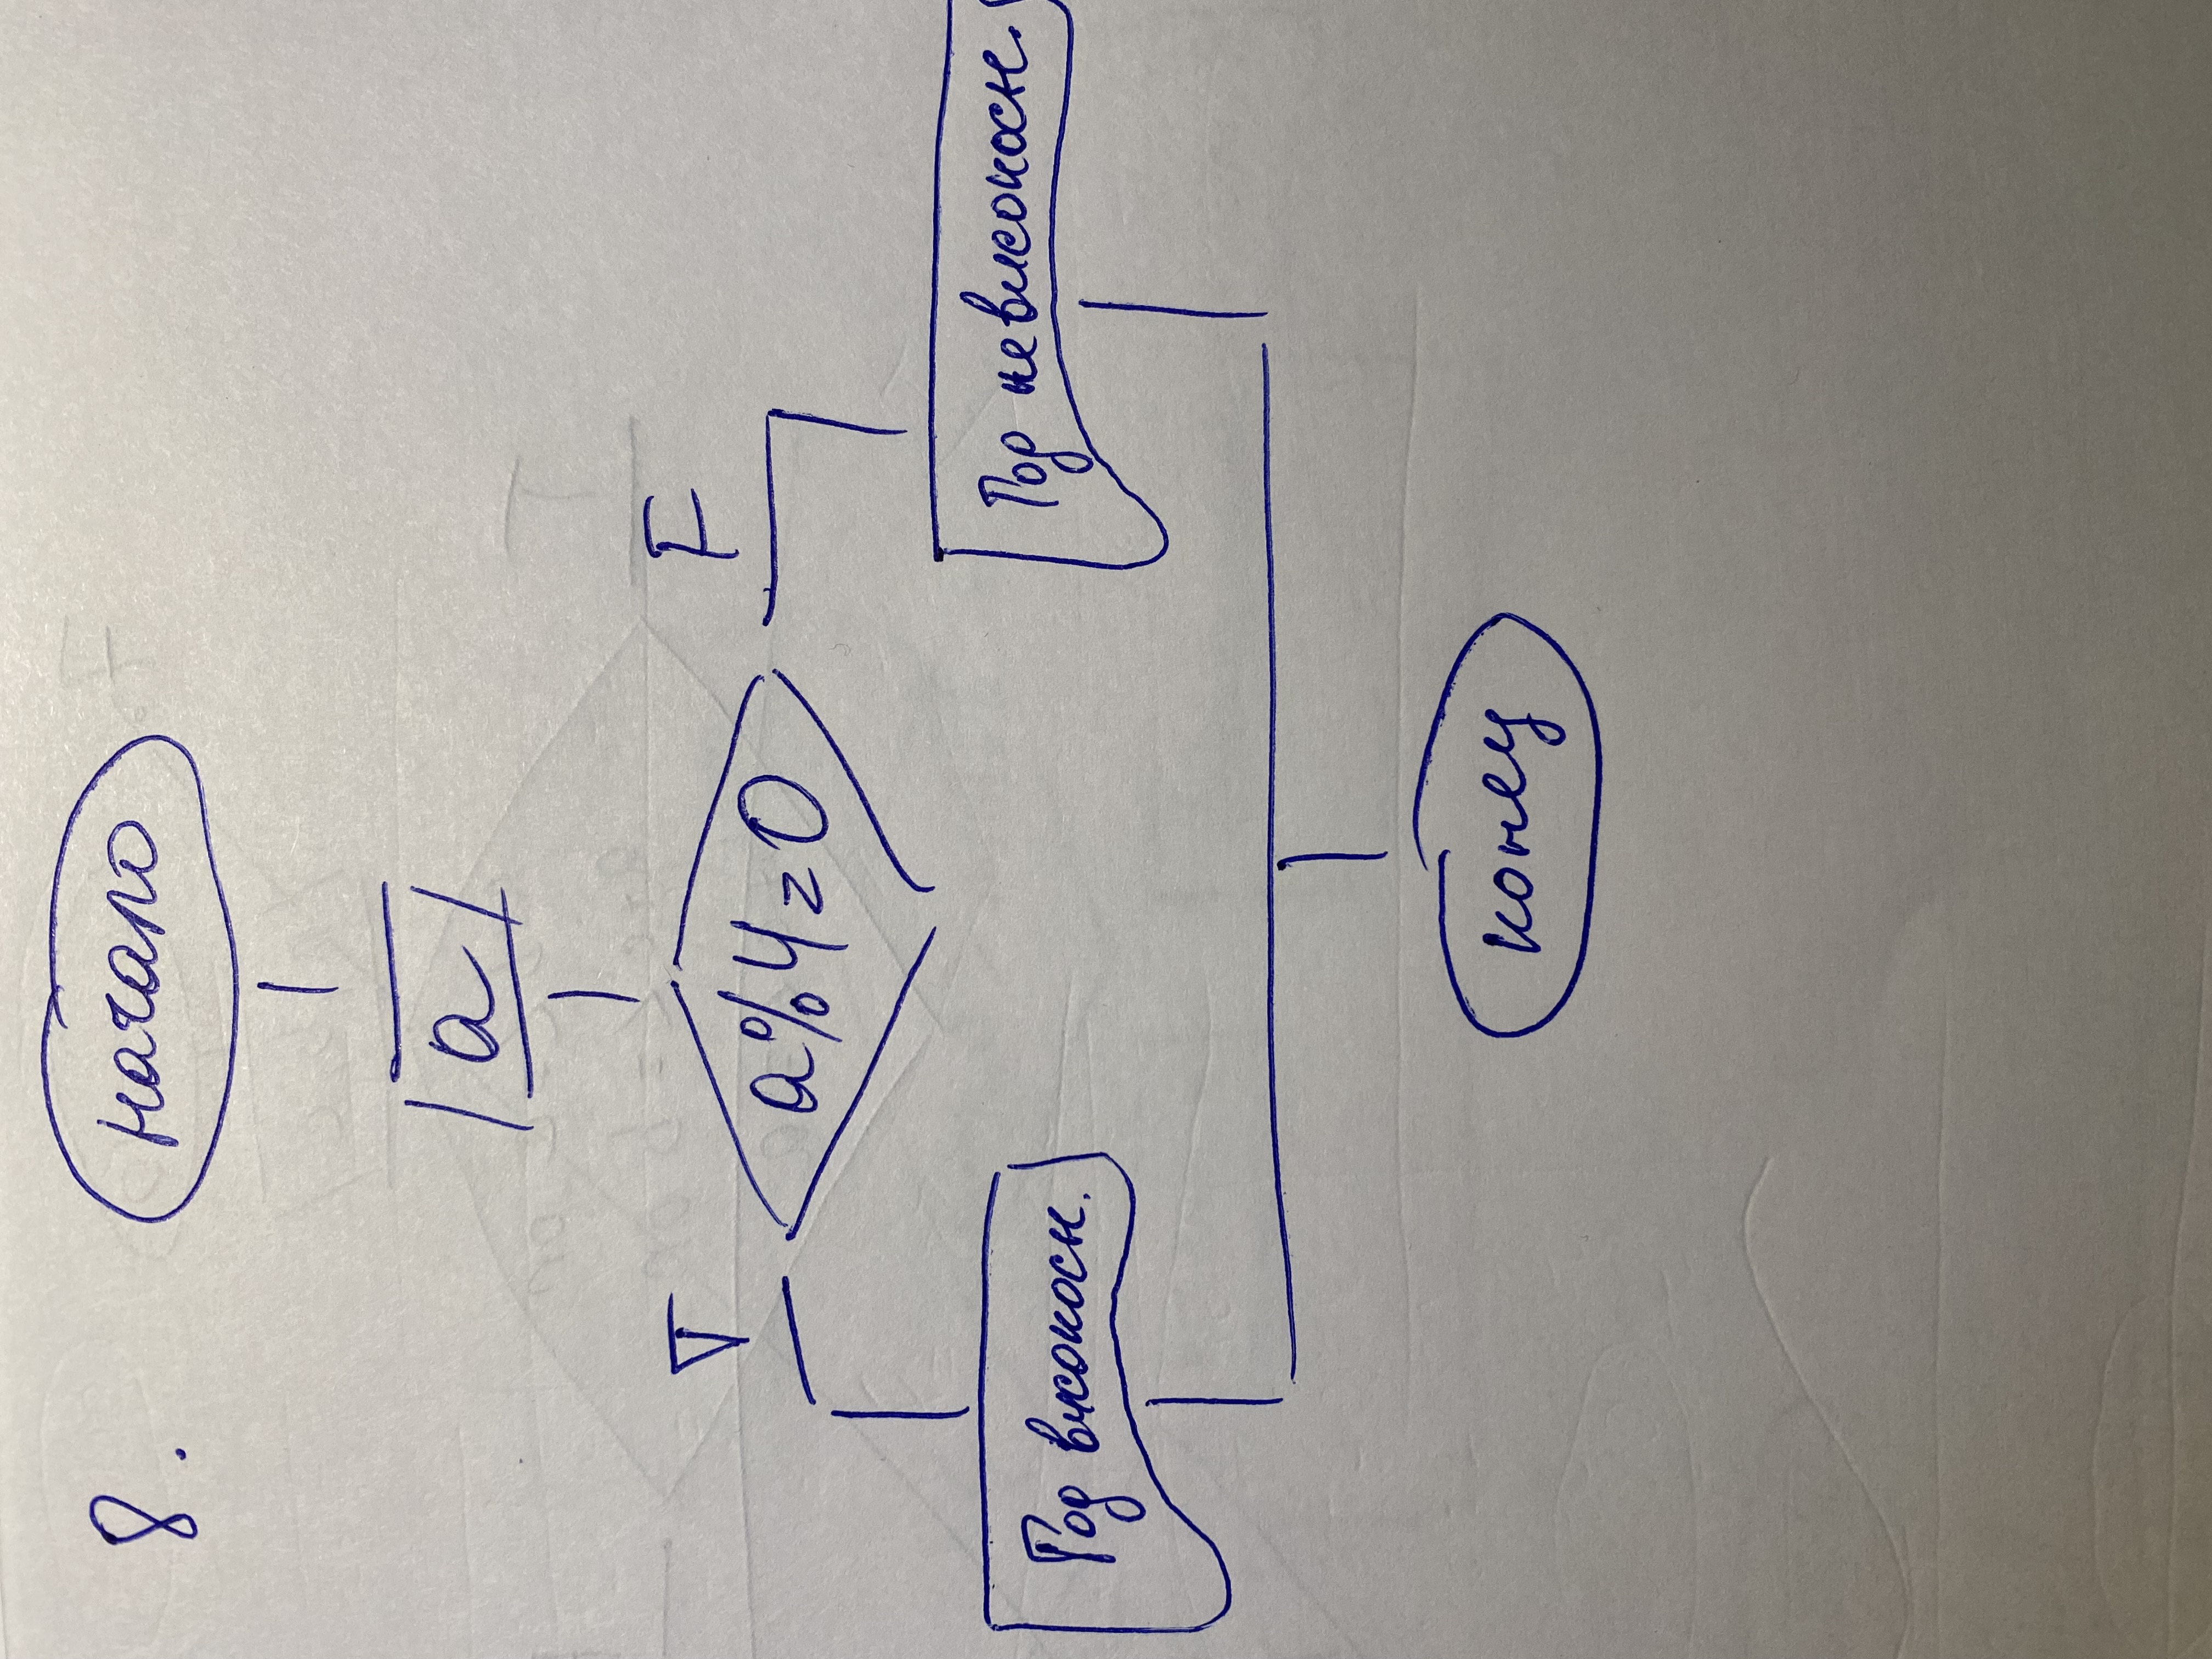 8.
начало
a
T
F
a%4=0
Год високосн.
Год не високосн.
конец